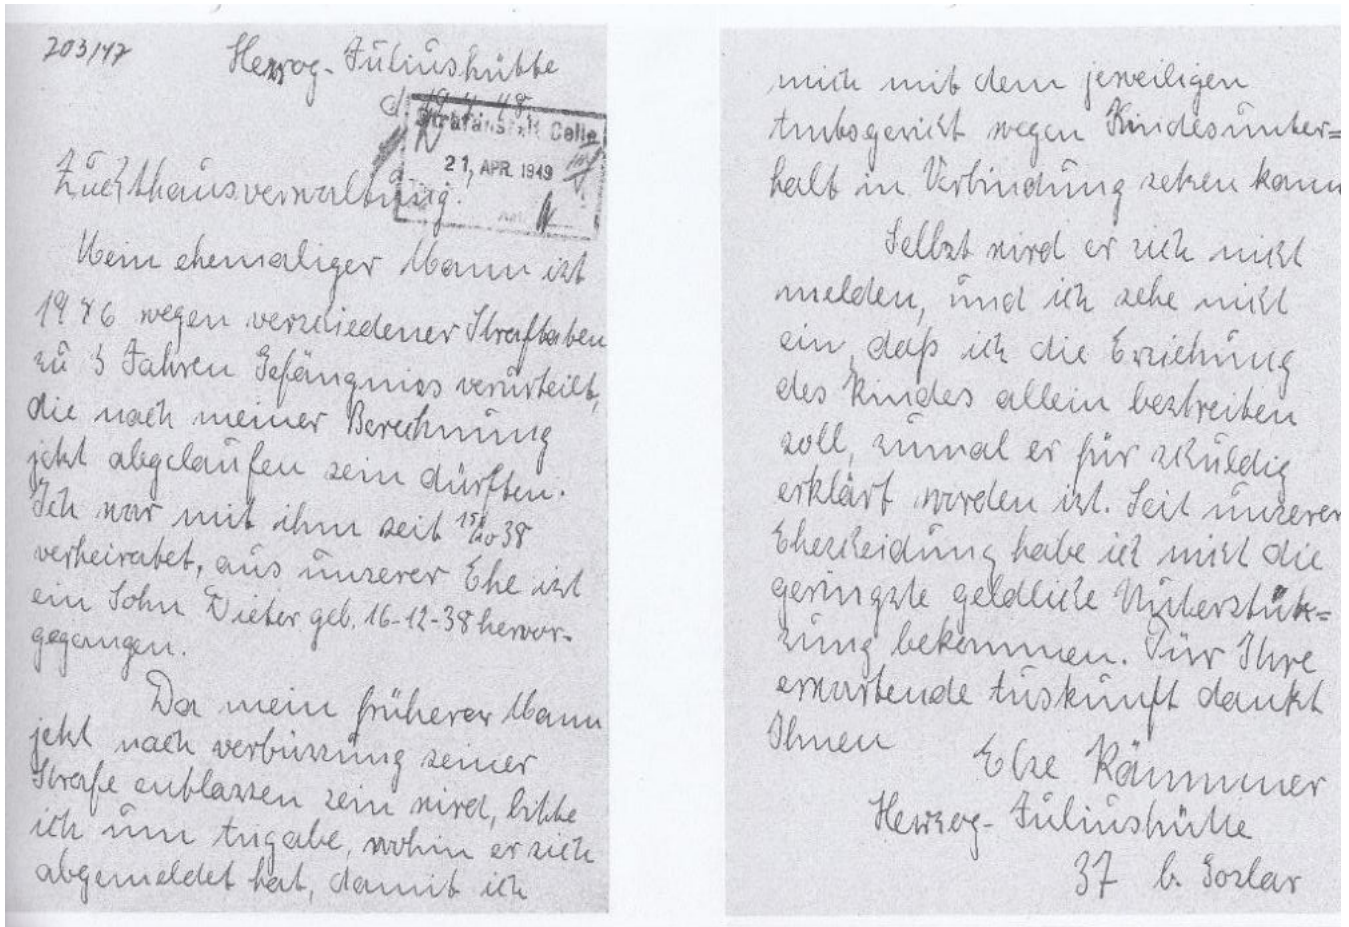 203/47
Herzog-Juliushütte
d. 19.4.49
Strafanstalt Celle
21. APR. 1949
Zuchthausverwaltung.
Mein ehemaliger Mann ist
1946 wegen verschiedener Straftaten
zu 3 Jahren Gefängniss verurteilt,
die nach meiner Berechnung
jetzt abgelaufen sein dürften.
Ich war mit ihm seit 15/10 38
verheiratet, aus unserer Ehe ist
ein Sohn Dieter geb. 16-12-38 hervor-
gegangen.
Da mein früherer Mann
jetzt nach verbüssung seiner
Strafe entlassen sein wird, bitte
ich um Angabe, wohin er sich
abgemeldet hat, damit ich
mich mit dem jeweiligen
Amtsgericht wegen Kindesunter=
halt in Verbindung setzen kann
Selbst wird er sich nicht
melden, und ich sehe nicht
ein, daß ich die Erziehung
des Kindes allein bestreiten
soll, zumal er für schuldig
erklärt worden ist. Seit unserer
Ehescheidung habe ich nicht die
geringste geldliche Unterstüt=
zung bekommen. Für Ihre
erwartende Auskunft dankt
Ihnen
Else Kämmer
Herzog-Juliushütte
37 b. Goslar